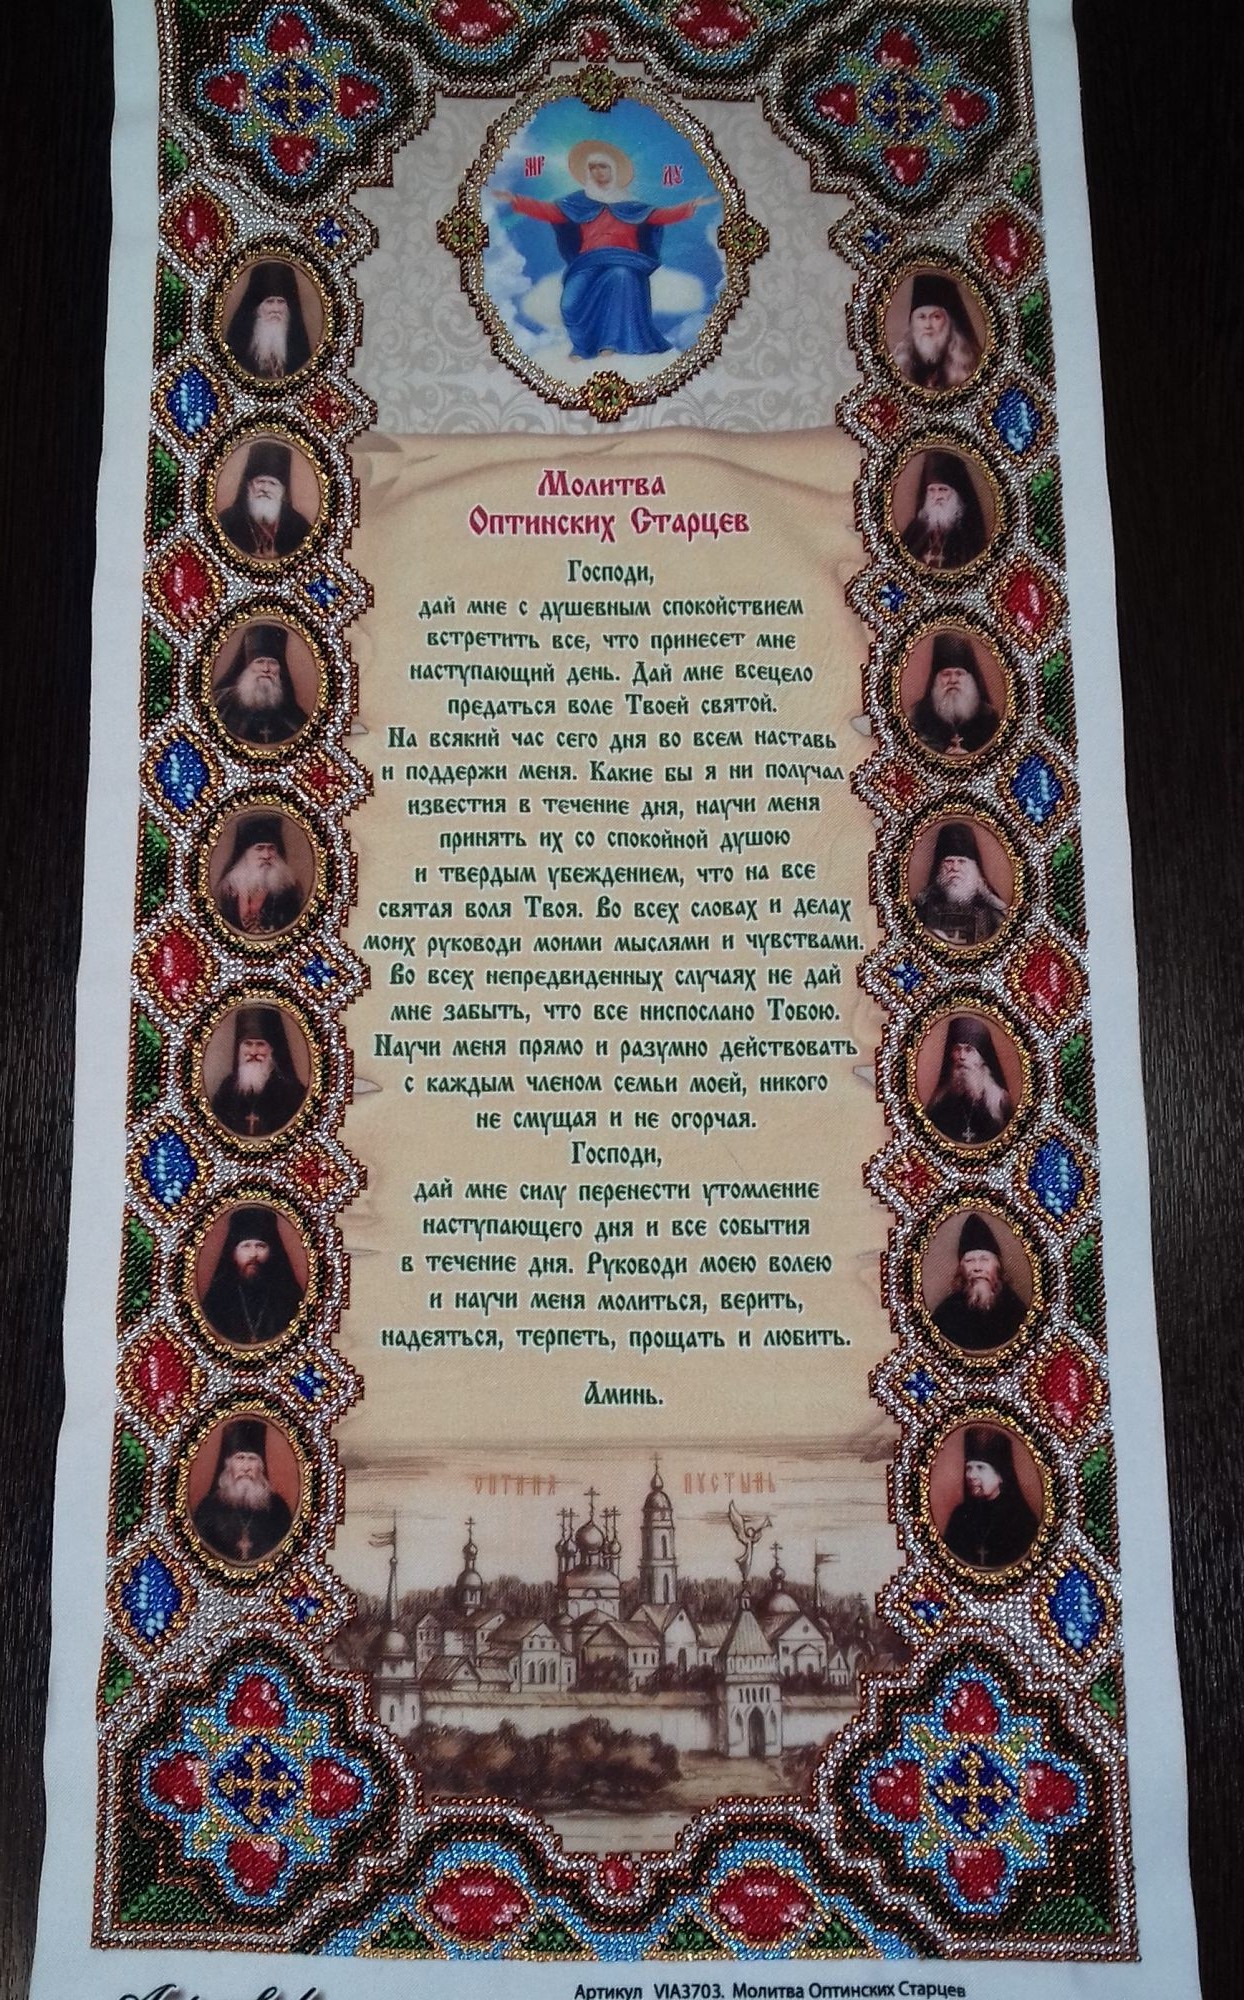 МР ДУ
Молитва
Оптинских Старцев
Господи,
дай мне с душевным спокойствием
встретить все, что принесет мне
наступающий день. Дай мне всецело
предаться воле Твоей святой.
На всякий час сего дня во всем наставь
и поддержи меня. Какие бы я ни получал
известия в течение дня, научи меня
принять их со спокойной душою
и твердым убеждением, что на все
святая воля Твоя. Во всех словах и делах
моих руководи моими мыслями и чувствами.
Во всех непредвиденных случаях не дай
мне забыть, что все ниспослано Тобою.
Научи меня прямо и разумно действовать
с каждым членом семьи моей, никого
не смущая и не огорчая.
Господи,
дай мне силу перенести утомление
наступающего дня и все события
в течение дня. Руководи моею волею
и научи меня молиться, верить,
надеяться, терпеть, прощать и любить.
Аминь.
ОПТИНА ПУСТЫНЬ
Артикул VIA3703. Молитва Оптинских Старцев